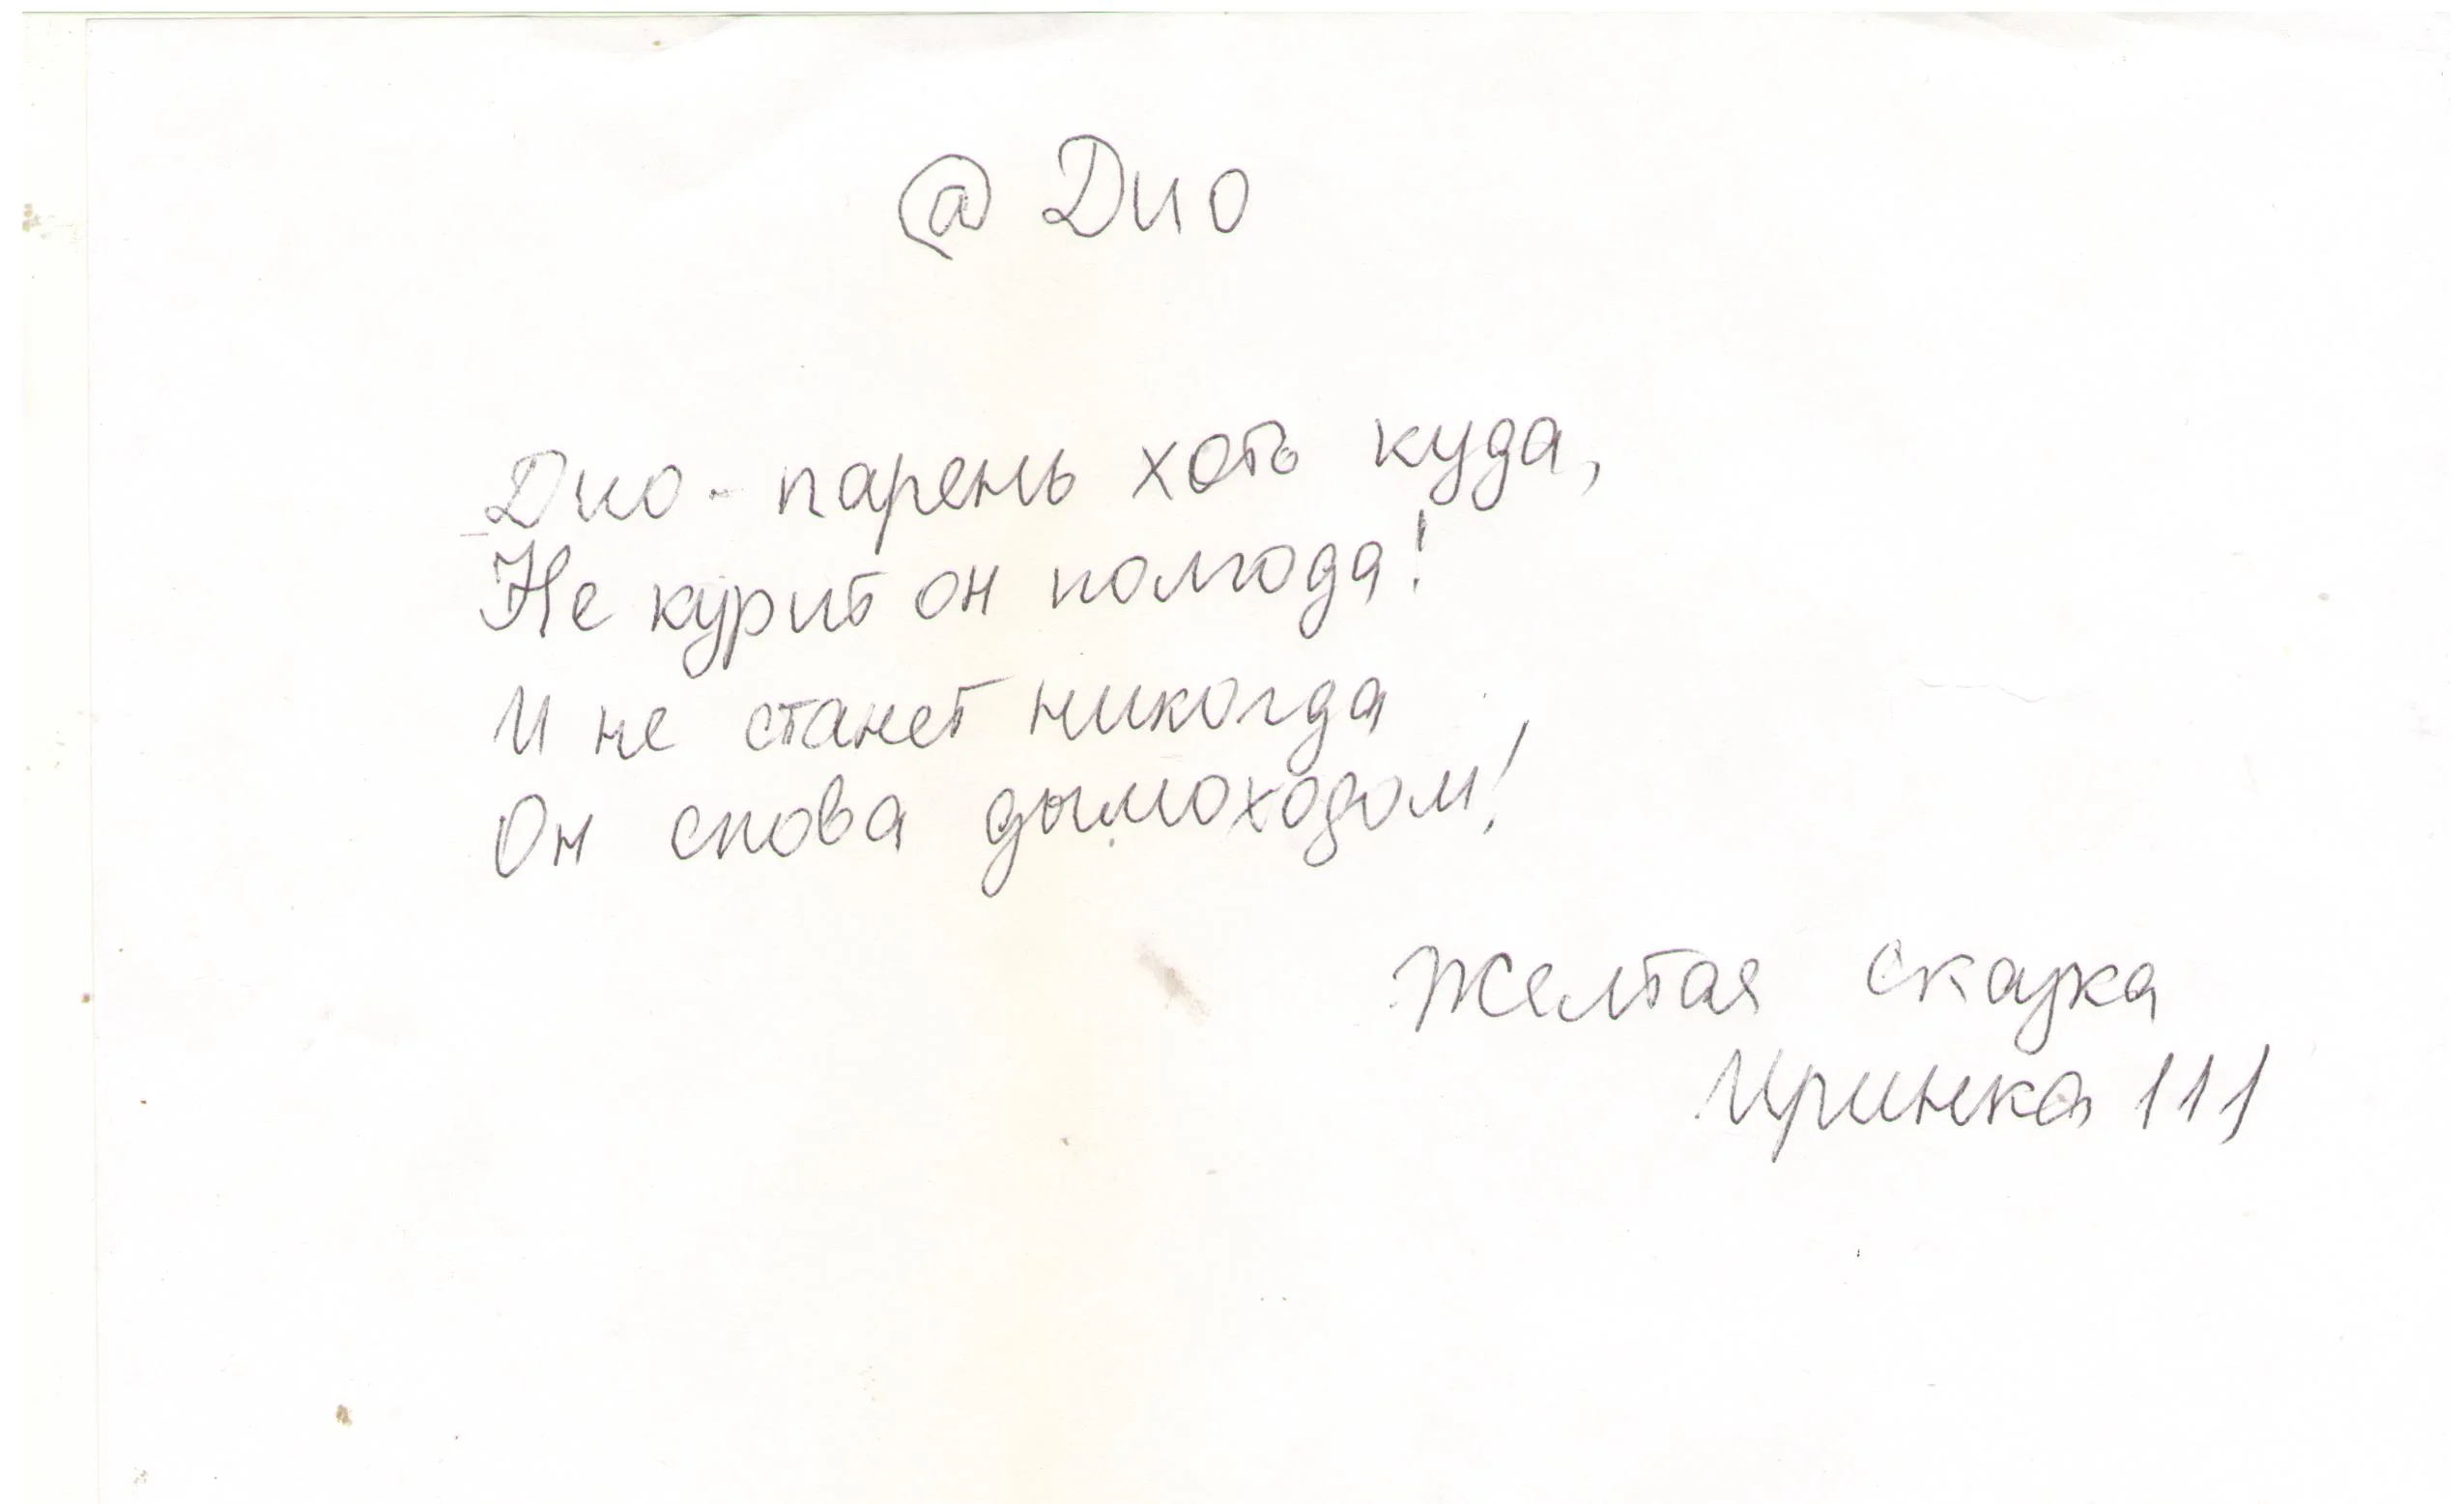 @ Дио
Дио - парень хоть куда,
Не курит он полгода!
И не станет никогда
Он снова дымоходом!
Желтая сказка
Иринка 111